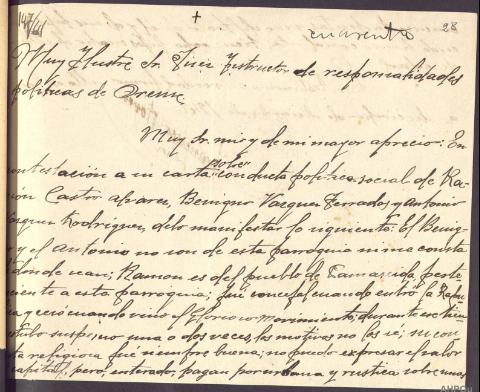 147/41
+
cuarenta
28
Muy Ilustre Sr. Juez Instructor de responsalidades
políticas de Orense
Muy Sr. mio y de mi mayor aprecio: En
contestación a su carta "sobre" conducta política social de Ra-
món Castro alvarez, Benigno Vazquez Ferrados y Antonio
Vazquez Rodriguez, debo manifestar lo siguiente: El Benig-
o y el Antonio no son de esta parroquia ni me consta
de donde sean; Ramon es del pueblo de perte-
ciente a esta parroquia; fué concejal cuando entró la Repu-
y cesó cuando vino el Glorioso Movimiento; durante ese tiem-
suspenso una o dos veces, los motivos no los sé; su con-
religiosa fue siempre buena; no puedo expresar el valor
capital, pero enterado, pagan por urbana y rustica sobre unas